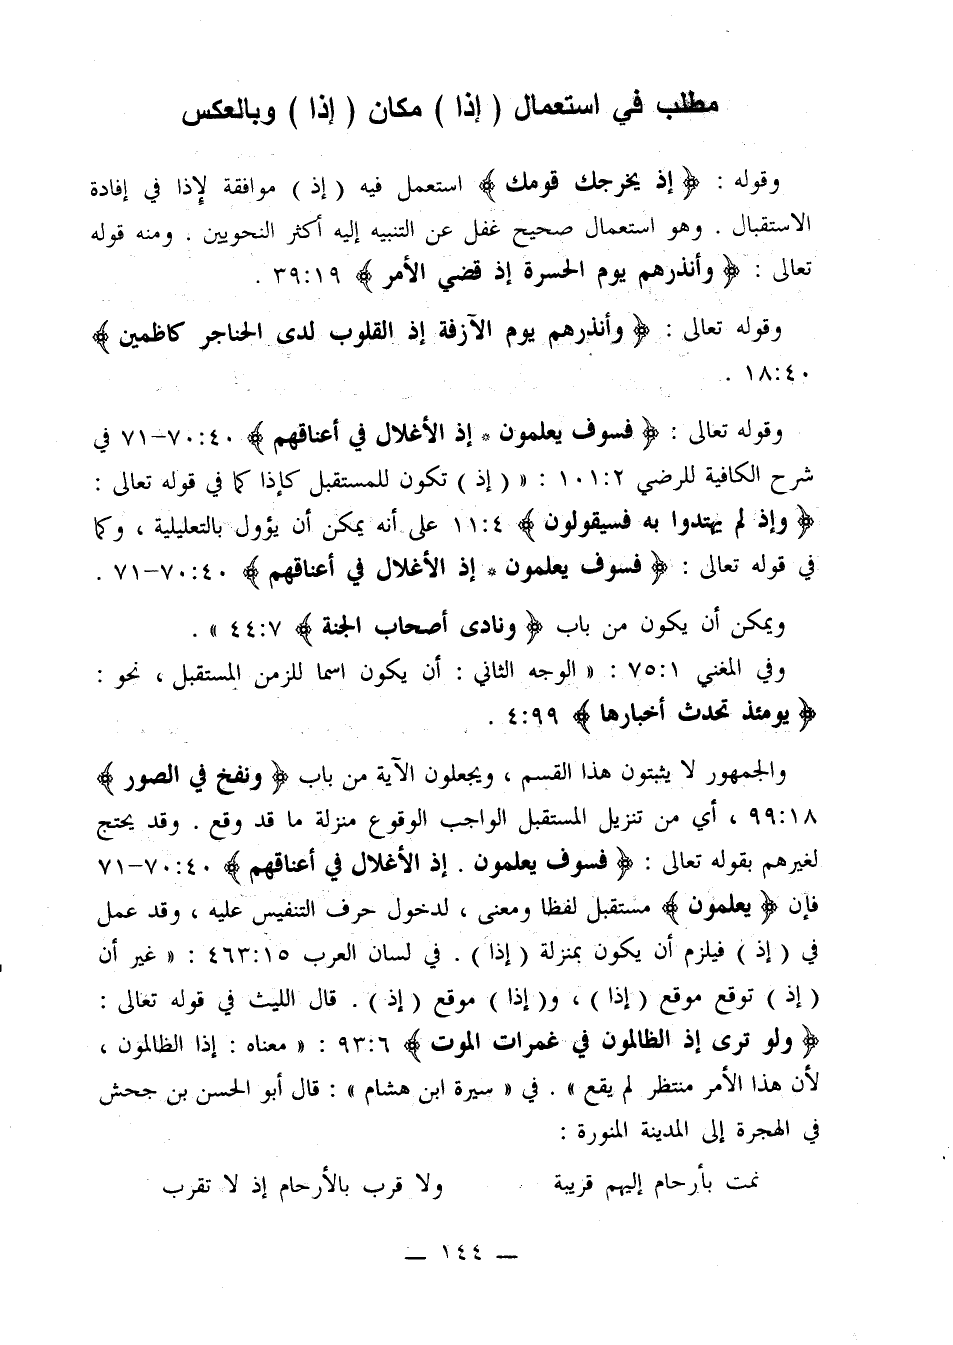 مطلب في استعمال ( إذا ) مكان ( إذا ) وبالعكس
وقوله : ﴿ إذ يخرجك قومك ﴾ استعمل فيه ( إذ ) موافقة لإذا في إفادة
الاستقبال . وهو استعمال صحيح غفل عن التنبيه إليه أكثر النحويين . ومنه قوله
تعالى : ﴿ وأنذرهم يوم الحسرة إذ قضي الأمر ﴾ ٣٩:١٩ .
وقوله تعالى : ﴿ وأنذرهم يوم الآزفة إذ القلوب لدى الحناجر كاظمين ﴾
١٨:٤٠ .
وقوله تعالى : ﴿ فسوف يعلمون * إذ الأغلال في أعناقهم ﴾ ٧٠:٤٠–٧١ في
شرح الكافية للرضي ١٠١:٢ : « ( إذ ) تكون للمستقبل كإذا كما في قوله تعالى :
﴿ وإذ لم يهتدوا به فسيقولون ﴾ ١١:٤ على أنه يمكن أن يؤول بالتعليلية ، وكما
في قوله تعالى : ﴿ فسوف يعلمون * إذ الأغلال في أعناقهم ﴾ ٧٠:٤٠–٧١ .
ويمكن أن يكون من باب ﴿ ونادى أصحاب الجنة ﴾ ٤٤:٧ » .
وفي المغني ٧٥:١ : « الوجه الثاني : أن يكون اسما للزمن المستقبل ، نحو :
﴿ يومئذ تحدث أخبارها ﴾ ٤:٩٩ .
والجمهور لا يثبتون هذا القسم ، ويجعلون الآية من باب ﴿ ونفخ في الصور ﴾
٩٩:١٨ ، أي من تنزيل المستقبل الواجب الوقوع منزلة ما قد وقع . وقد يحتج
لغيرهم بقوله تعالى : ﴿ فسوف يعلمون . إذ الأغلال في أعناقهم ﴾ ٧٠:٤٠–٧١
فإن ﴿ يعلمون ﴾ مستقبل لفظا ومعنى ، لدخول حرف التنفيس عليه ، وقد عمل
في ( إذ ) فيلزم أن يكون بمنزلة ( إذا ) . في لسان العرب ٤٦٣:١٥ : « غير أن
( إذ ) توقع موقع ( إذا ) ، و( إذا ) موقع ( إذ ) . قال الليث في قوله تعالى :
﴿ ولو ترى إذ الظالمون في غمرات الموت ﴾ ٩٣:٦ : « معناه : إذا الظالمون ،
لأن هذا الأمر منتظر لم يقع » . في « سيرة ابن هشام » : قال أبو الحسن بن جحش
في الهجرة إلى المدينة المنورة :
نمت بأرحام إليهم قريبة ولا قرب بالأرحام إذ لا تقرب
— ١٤٤ —